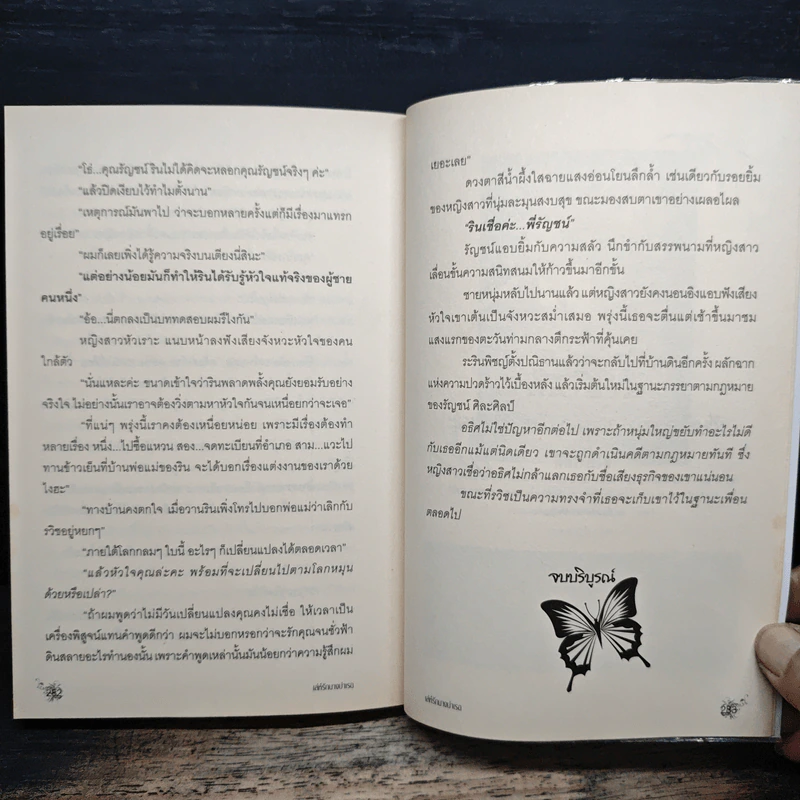 “โธ่...คุณรัญชน์ รินไม่ได้คิดจะหลอกคุณรัญชน์จริงๆ ค่ะ”
“แล้วปิดเงียบไว้ทำไมตั้งนาน”
“เหตุการณ์มันพาไป ว่าจะบอกหลายครั้งแต่ก็มีเรื่องมาแทรก
อยู่เรื่อย”
“ผมก็เลยเพิ่งได้รู้ความจริงบนเตียงนี่สินะ”
“แต่อย่างน้อยมันก็ทำให้รินได้รับรู้หัวใจแท้จริงของผู้ชาย
คนหนึ่ง”
“อ้อ...นี่ตกลงเป็นบททดสอบผมรึไงกัน”
หญิงสาวหัวเราะ แนบหน้าลงฟังเสียงจังหวะหัวใจของคน
ใกล้ตัว
“นั่นแหละค่ะ ขนาดเข้าใจว่ารินพลาดพลั้งคุณยังยอมรับอย่าง
จริงใจ ไม่อย่างนั้นเราอาจต้องวิ่งตามหาหัวใจกันจนเหนื่อยกว่าจะเจอ”
“ที่แน่ๆ พรุ่งนี้เราคงต้องเหนื่อยหน่อย เพราะมีเรื่องต้องทำ
หลายเรื่อง หนึ่ง...ไปซื้อแหวน สอง...จดทะเบียนที่อำเภอ สาม...แวะไป
ทานข้าวเย็นที่บ้านพ่อแม่ของริน จะได้บอกเรื่องแต่งงานของเราด้วย
ไงฮะ”
“ทางบ้านคงตกใจ เมื่อวานรินเพิ่งโทรไปบอกพ่อแม่ว่าเลิกกับ
รวิชอยู่หยกๆ”
“ภายใต้โลกกลมๆ ใบนี้ อะไรๆ ก็เปลี่ยนแปลงได้ตลอดเวลา”
“แล้วหัวใจคุณล่ะคะ พร้อมที่จะเปลี่ยนไปตามโลกหมุน
ด้วยหรือเปล่า?”
“ถ้าผมพูดว่าไม่มีวันเปลี่ยนแปลงคุณคงไม่เชื่อ ให้เวลาเป็น
เครื่องพิสูจน์แทนคำพูดดีกว่า ผมจะไม่บอกหรอกว่าจะรักคุณจนชั่วฟ้า
ดินสลายอะไรทำนองนั้น เพราะคำพูดเหล่านั้นมันน้อยกว่าความรู้สึกผม
282
เยอะเลย”
ดวงตาสีน้ำผึ้งใสฉายแสงอ่อนโยนลึกล้ำ เช่นเดียวกับรอยยิ้ม
ของหญิงสาวที่นุ่มละมุนสงบสุข ขณะมองสบตาเขาอย่างเผลอไผล
“รินเชื่อค่ะ...พี่รัญชน์”
รัญชน์แอบยิ้มกับความสลัว นึกขำกับสรรพนามที่หญิงสาว
เลื่อนขั้นความสนิทสนมให้ก้าวขึ้นมาอีกขั้น
ชายหนุ่มหลับไปนานแล้ว แต่หญิงสาวยังคงนอนอิงแอบฟังเสียง
หัวใจเขาเต้นเป็นจังหวะสม่ำเสมอ พรุ่งนี้เธอจะตื่นแต่เช้าขึ้นมาชม
แสงแรกของตะวันท่ามกลางตึกระฟ้าที่คุ้นเคย
ระรินพิชญ์ตั้งปณิธานแล้วว่าจะกลับไปที่บ้านดินอีกครั้ง ผลักฉาก
แห่งความปวดร้าวไว้เบื้องหลัง แล้วเริ่มต้นใหม่ในฐานะภรรยาตามกฎหมาย
ของรัญชน์ ศิละศิลป์
อธิศไม่ใช่ปัญหาอีกต่อไป เพราะถ้าหนุ่มใหญ่ขยับทำอะไรไม่ดี
กับเธออีกแม้แต่นิดเดียว เขาจะถูกดำเนินคดีตามกฎหมายทันที ซึ่ง
หญิงสาวเชื่อว่าอธิศไม่กล้าแลกเธอกับชื่อเสียงธุรกิจของเขาแน่นอน
ขณะที่รวิชเป็นความทรงจำที่เธอจะเก็บเขาไว้ในฐานะเพื่อน
ตลอดไป
จบบริบูรณ์
283